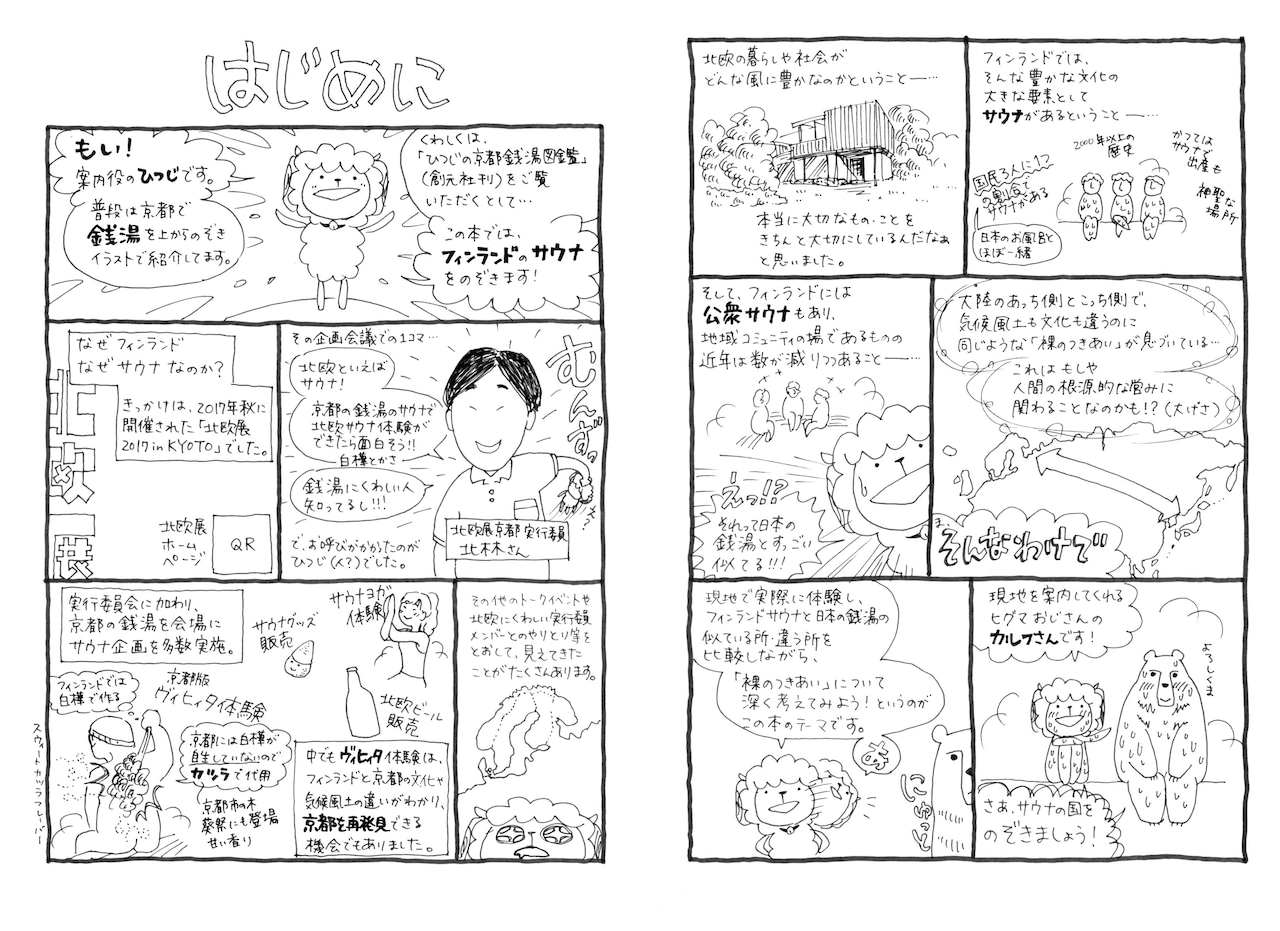 はじめに
もい!
案内役のひつじです。
普段は京都で
銭湯を上からのぞき
イラストで紹介してます。
くわしくは、
「ひつじの京都銭湯図鑑」
(創元社刊)をご覧
いただくとして…
この本では、
フィンランドのサウナ
をのぞきます!
なぜフィンランド
なぜサウナなのか?
北欧展
きっかけは、2017年秋に
開催された「北欧展
2017 in KYOTO」でした。
北欧展
ホーム
ページ
QR
その企画会議での1コマ…
北欧といえば
サウナ!
京都の銭湯のサウナで
北欧サウナ体験が
できたら面白そう!!
白樺とかさ
銭湯にくわしい人
知ってるし!!!
むんずっ
え?
北欧展京都実行委員
北林さん
で、お呼びがかかったのが
ひつじ(人?)でした。
実行委員会に加わり、
京都の銭湯を会場に
サウナ企画を多数実施。
サウナグッズ
販売
サウナヨガ
体験
北欧ビール
販売
フィンランドでは
白樺で作る
京都版
ヴィヒタ体験
京都には白樺が
自生していないので
カツラで代用
京都市の木
葵祭にも登場
甘い香り
スウィートカツラフレーバー
中でもヴィヒタ体験は、
フィンランドと京都の文化や
気候風土の違いがわかり、
京都を再発見できる
機会でもありました。
その他のトークイベントや
北欧にくわしい実行委員
メンバーとのやりとり等を
とおして、見えてきた
ことがたくさんあります。
北欧の暮らしや社会が
どんな風に豊かなのかということ―…
本当に大切なもの・ことを
きちんと大切にしているんだなぁ
と思いました。
フィンランドでは、
そんな豊かな文化の
大きな要素として
サウナがあるということ―…
国民3人に1コ
の割合で
サウナがある
日本のお風呂と
ほぼ一緒
2000年以上の
歴史
かつては
サウナで
出産も
神聖な
場所
そして、フィンランドには
公衆サウナもあり、
地域コミュニティの場であるものの
近年は数が減りつつあること―…
えっ!?
それって日本の
銭湯とすっごい
似てる!!!
大陸のあっち側とこっち側で、
気候風土も文化も違うのに
同じような「裸のつきあい」が息づいている…
これはもしや
人間の根源的な営みに
関わることなのかも!?(大げさ)
ま、
そんなわけで
現地で実際に体験し、
フィンランドサウナと日本の銭湯の
似ている所・違う所を
比較しながら、
「裸のつきあい」について
深く考えてみよう!というのが
この本のテーマです。
め
にゅっ
現地を案内してくれる
ヒグマおじさんの
カルフさんです!
よろしくま
さあ、サウナの国を
のぞきましょう!